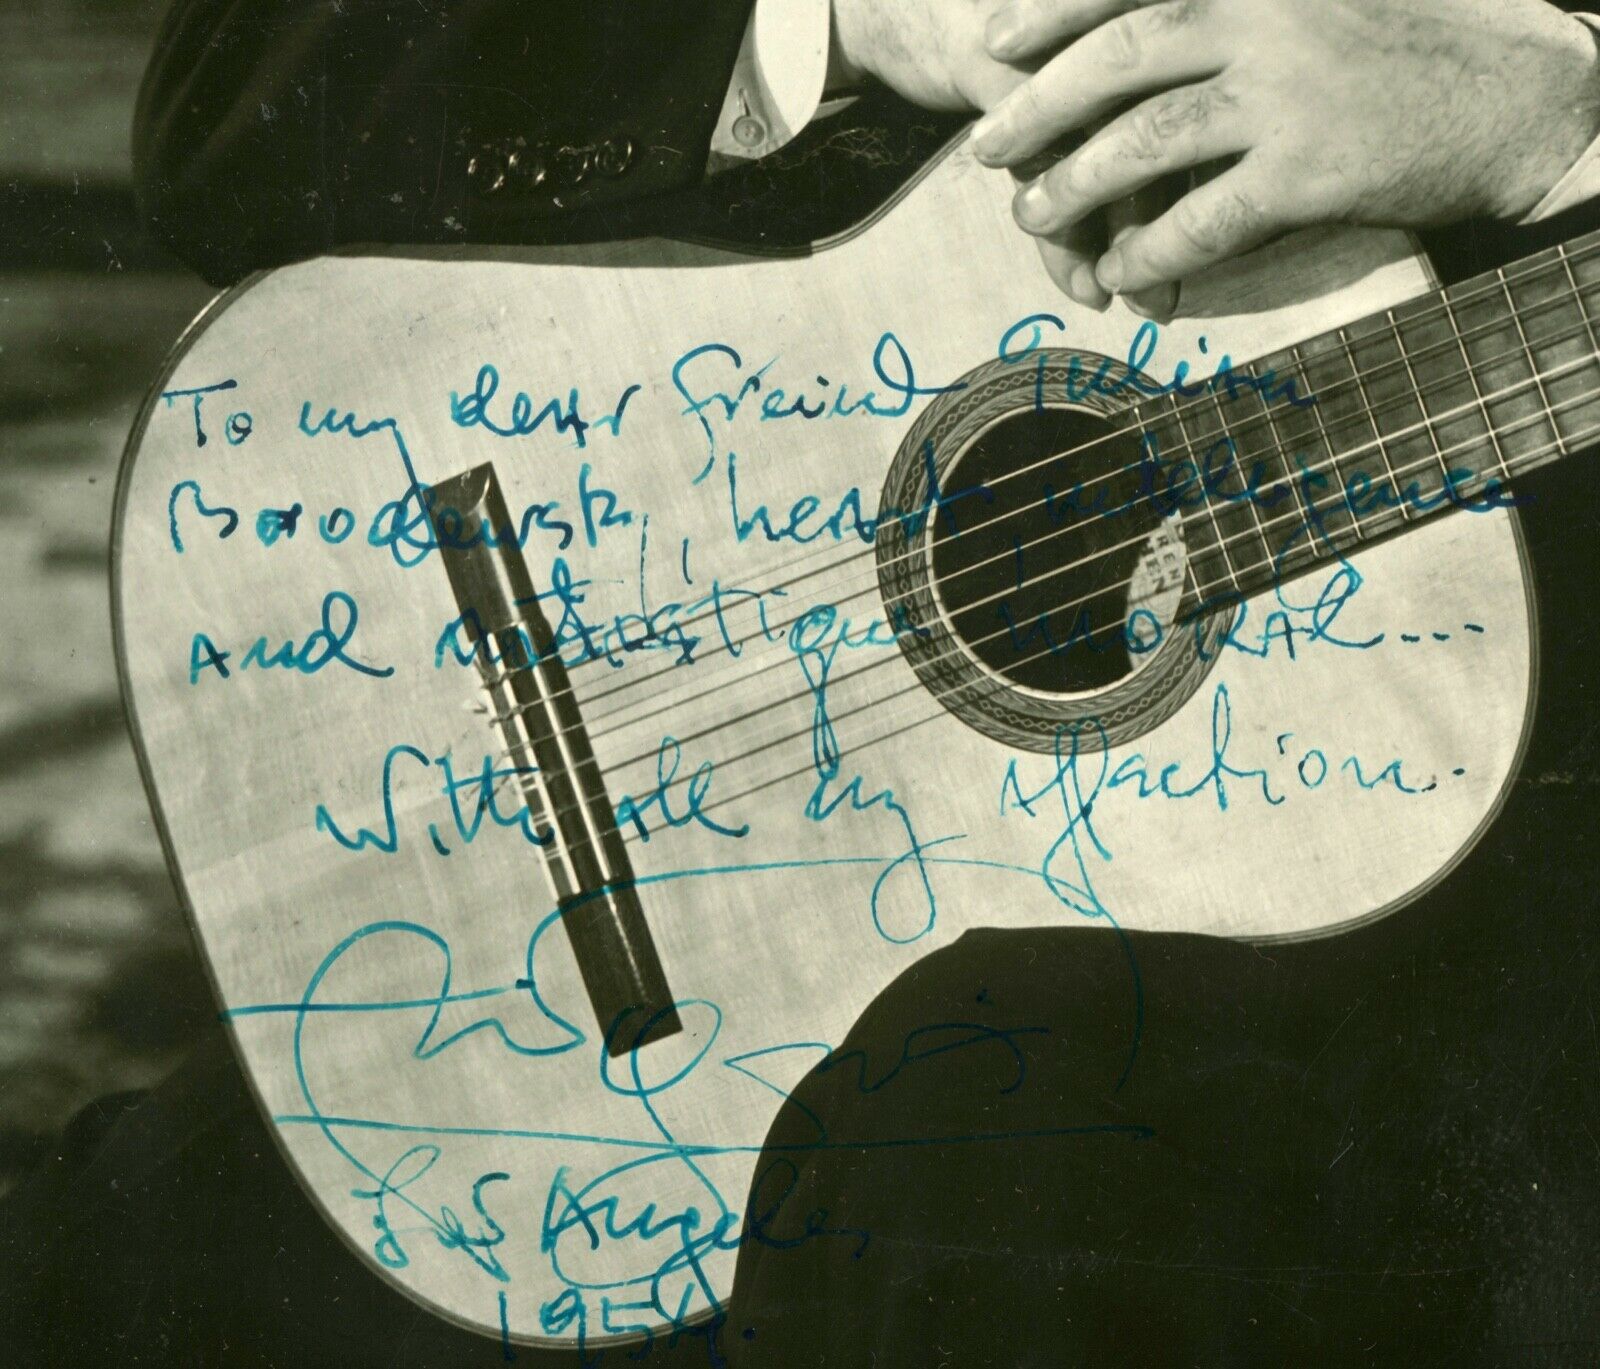 To my dear freind Julian
Borodewski, heart, inteligence
and moral...
With all my affection.
Los Angeles
1954.